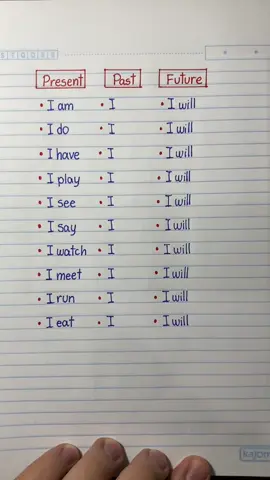 Present Past Future
• I am • I • I will
• I do • I • I will
• I have • I • I will
• I play • I • I will
• I see • I • I will
• I say • I • I will
• I watch • I • I will
• I meet • I • I will
• I run • I • I will
• I eat • I • I will